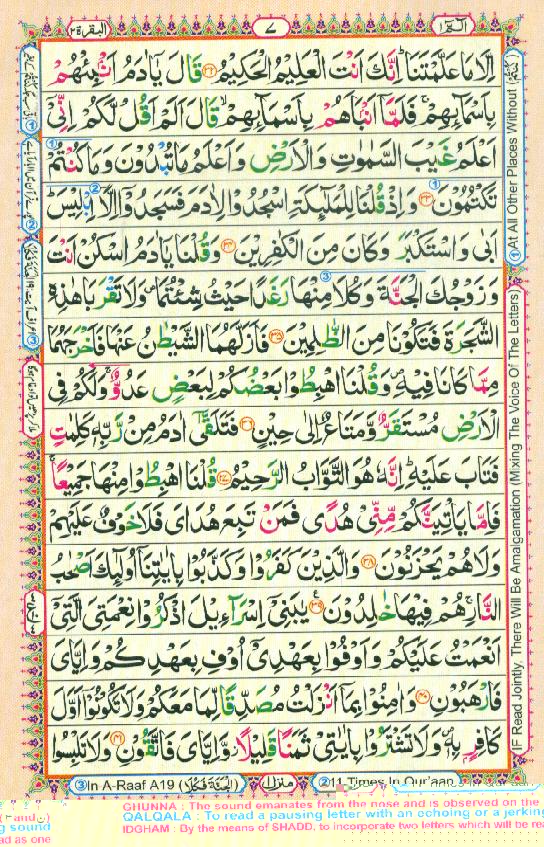 البقرة ٢
٧
الٓمّٓ ١
اِلَّا مَا عَلَّمْتَنَا ؕ اِنَّكَ اَنْتَ الْعَلِيْمُ الْحَكِيْمُ ﴿۳۲﴾ قَالَ يٰۤاٰدَمُ اَنْۢبِئْهُمْ
بِاَسْمَآئِهِمْ ۚ فَلَمَّاۤ اَنْۢبَاَهُمْ بِاَسْمَآئِهِمْ ۙ قَالَ اَلَمْ اَقُلْ لَّكُمْ اِنِّيْۤ
اَعْلَمُ غَيْبَ السَّمٰوٰتِ وَالْاَرْضِ ۙ وَاَعْلَمُ مَا تُبْدُوْنَ وَمَا كُنْتُمْ
تَكْتُمُوْنَ ﴿۳۳﴾ وَاِذْ قُلْنَا لِلْمَلٰٓئِكَةِ اسْجُدُوْا لِاٰدَمَ فَسَجَدُوْۤا اِلَّاۤ اِبْلِيْسَ ؕ
اَبٰى وَاسْتَكْبَرَ ٭ۗ وَكَانَ مِنَ الْكٰفِرِيْنَ ﴿۳۴﴾ وَقُلْنَا يٰۤاٰدَمُ اسْكُنْ اَنْتَ
وَزَوْجُكَ الْجَنَّةَ وَكُلَا مِنْهَا رَغَدًا حَيْثُ شِئْتُمَا ۪ وَلَا تَقْرَبَا هٰذِهِ
الشَّجَرَةَ فَتَكُوْنَا مِنَ الظّٰلِمِيْنَ ﴿۳۵﴾ فَاَزَلَّهُمَا الشَّيْطٰنُ عَنْهَا فَاَخْرَجَهُمَا
مِمَّا كَانَا فِيْهِ ۪ وَقُلْنَا اهْبِطُوْا بَعْضُكُمْ لِبَعْضٍ عَدُوٌّ ۚ وَلَكُمْ فِي
الْاَرْضِ مُسْتَقَرٌّ وَّمَتَاعٌ اِلٰى حِيْنٍ ﴿۳۶﴾ فَتَلَقّٰۤى اٰدَمُ مِنْ رَّبِّهٖ كَلِمٰتٍ
فَتَابَ عَلَيْهِ ؕ اِنَّهٗ هُوَ التَّوَّابُ الرَّحِيْمُ ﴿۳۷﴾ قُلْنَا اهْبِطُوْا مِنْهَا جَمِيْعًا ۚ
فَاِمَّا يَاْتِيَنَّكُمْ مِّنِّيْ هُدًى فَمَنْ تَبِعَ هُدَايَ فَلَا خَوْفٌ عَلَيْهِمْ
وَلَا هُمْ يَحْزَنُوْنَ ﴿۳۸﴾ وَالَّذِيْنَ كَفَرُوْا وَكَذَّبُوْا بِاٰيٰتِنَاۤ اُولٰٓئِكَ اَصْحٰبُ
النَّارِ ۚ هُمْ فِيْهَا خٰلِدُوْنَ ﴿۳۹﴾ يٰبَنِيْۤ اِسْرَآءِيْلَ اذْكُرُوْا نِعْمَتِيَ الَّتِيْۤ
اَنْعَمْتُ عَلَيْكُمْ وَاَوْفُوْا بِعَهْدِيْۤ اُوْفِ بِعَهْدِكُمْ ۚ وَاِيَّايَ
فَارْهَبُوْنِ ﴿۴۰﴾ وَاٰمِنُوْا بِمَاۤ اَنْزَلْتُ مُصَدِّقًا لِّمَا مَعَكُمْ وَلَا تَكُوْنُوْۤا اَوَّلَ
كَافِرٍۢ بِهٖ ۪ وَلَا تَشْتَرُوْا بِاٰيٰتِيْ ثَمَنًا قَلِيْلًا ۫ وَّاِيَّايَ فَاتَّقُوْنِ ﴿۴۱﴾ وَلَا تَلْبِسُوا
① At All Other Places Without
IF Read Jointly, There Will Be Amalgamation (Mixing The Voice Of The Letters)
③ In A-Raaf A19
منزل ١
② 11 Times In Qur'aan
GHUNNA : The sound emanates from the nose and is observed on the
QALQALA : To read a pausing letter with an echoing or a jerking
IDGHAM : By the means of SHADD, to incorporate two letters which will be rea
g sound
ad as one